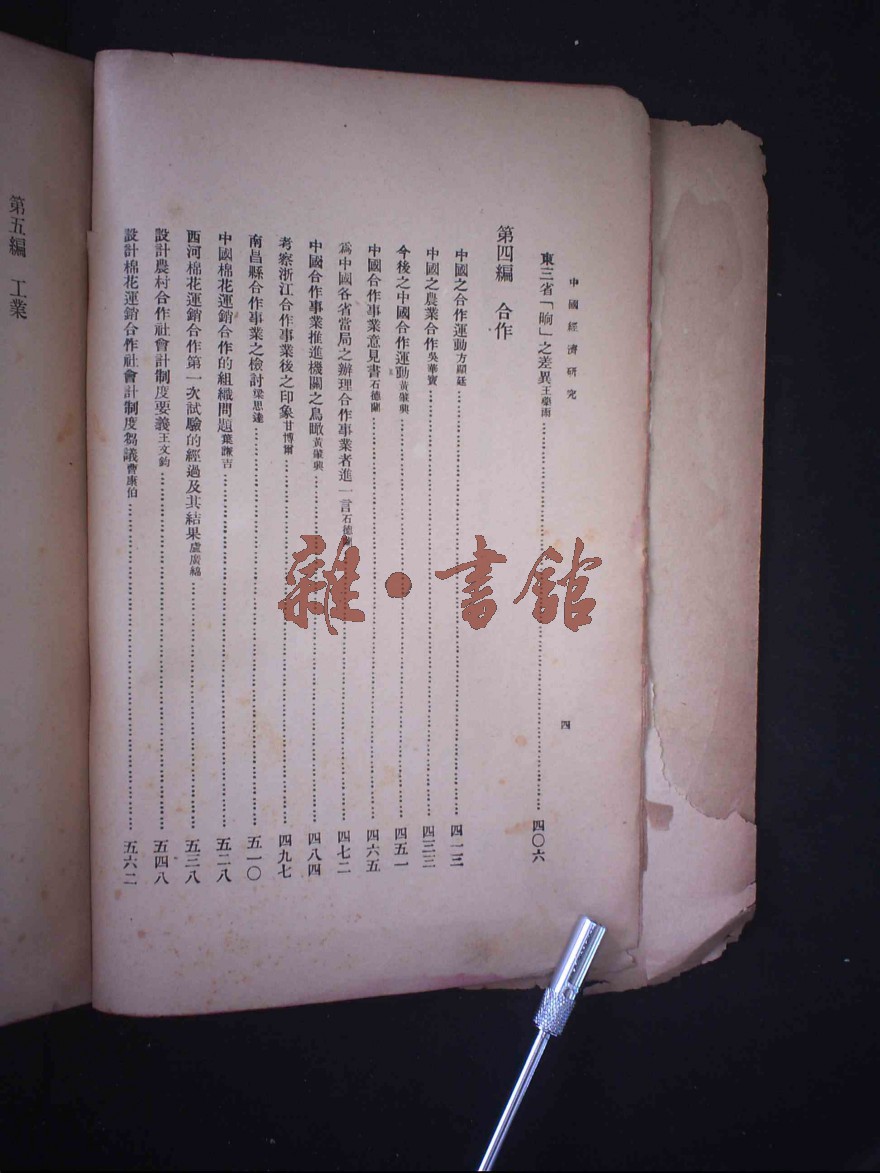 中國經濟研究
四
東三省「晌」之差異王藥雨……四〇六
第四編 合作
中國之合作運動方顯廷……四一三
中國之農業合作吳華寶……四三三
今後之中國合作運動黃肇興……四五一
中國合作事業意見書石德蘭……四六五
爲中國各省當局之辦理合作事業者進一言石德蘭……四七二
中國合作事業推進機關之鳥瞰黃肇興……四八四
考察浙江合作事業後之印象甘博爾……四九七
南昌縣合作事業之檢討梁思達……五一〇
中國棉花運銷合作的組織問題葉謙吉……五二八
西河棉花運銷合作第一次試驗的經過及其結果盧廣綿……五三八
設計農村合作社會計制度要義王文鈞……五四八
設計棉花運銷合作社會計制度芻議曹康伯……五六二
第五編 工業
雜·書館